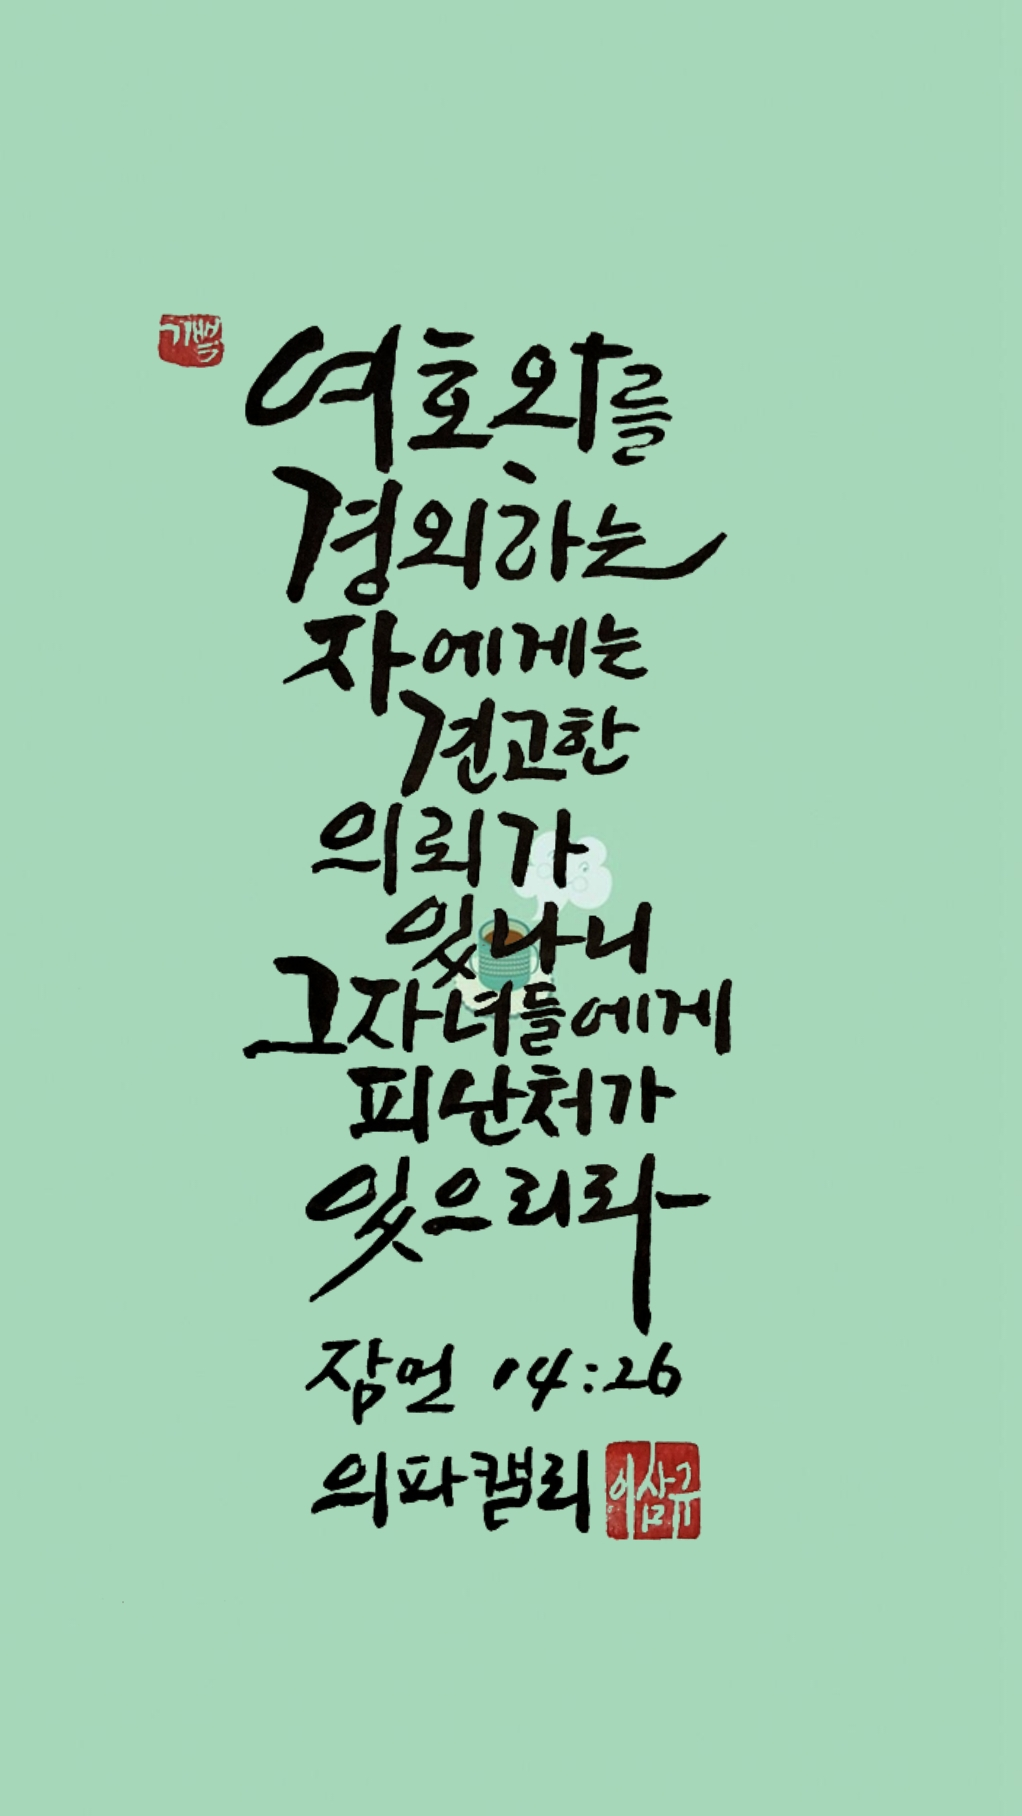 여호와를
경외하는
자에게는
견고한
의뢰가
있나니
그자녀들에게
피난처가
있으리라
잠언 14:26
의파캘리 이삼규